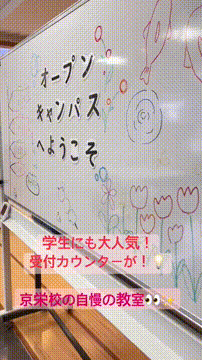 オープン
キャンパス
へようこそ
学生にも大人気！
受付カウンターが！
京栄校の自慢の教室👀✨